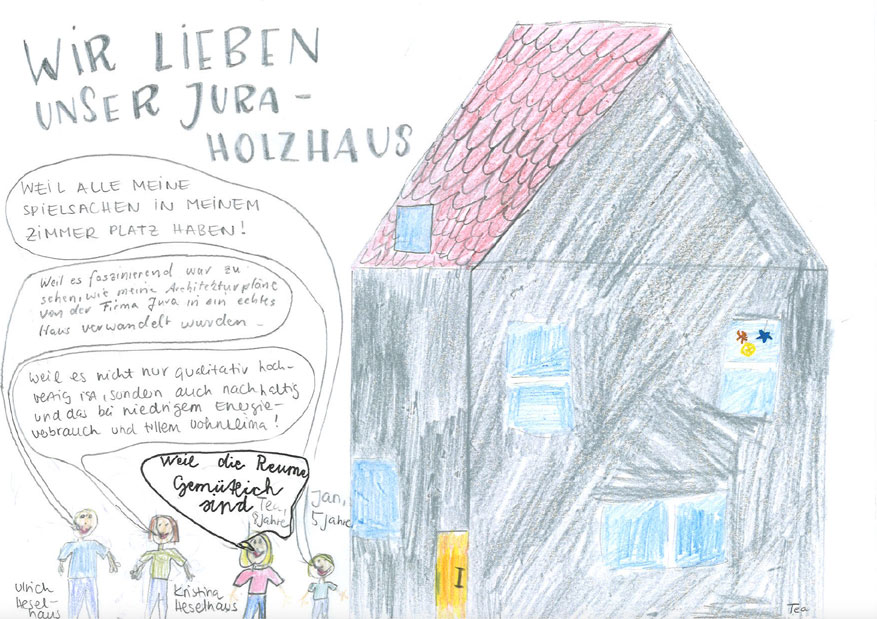 WIR LIEBEN
UNSER JURA-
HOLZHAUS
WEIL ALLE MEINE
SPIELSACHEN IN MEINEM
ZIMMER PLATZ HABEN!
Weil es faszinierend war zu
sehen, wie meine Architekturpläne
von der Firma Jura in ein echtes
Haus verwandelt wurden.
Weil es nicht nur qualitativ hoch-
wertig ist, sondern auch nachhaltig
und das bei niedrigem Energie-
verbrauch und tollem Wohnklima!
Weil die Reume
Gemütlich
sind
Tea,
8 Jahre
Jan,
5 Jahre
Ulrich
Hesel-
haus
Kristina
Heselhaus
Tea